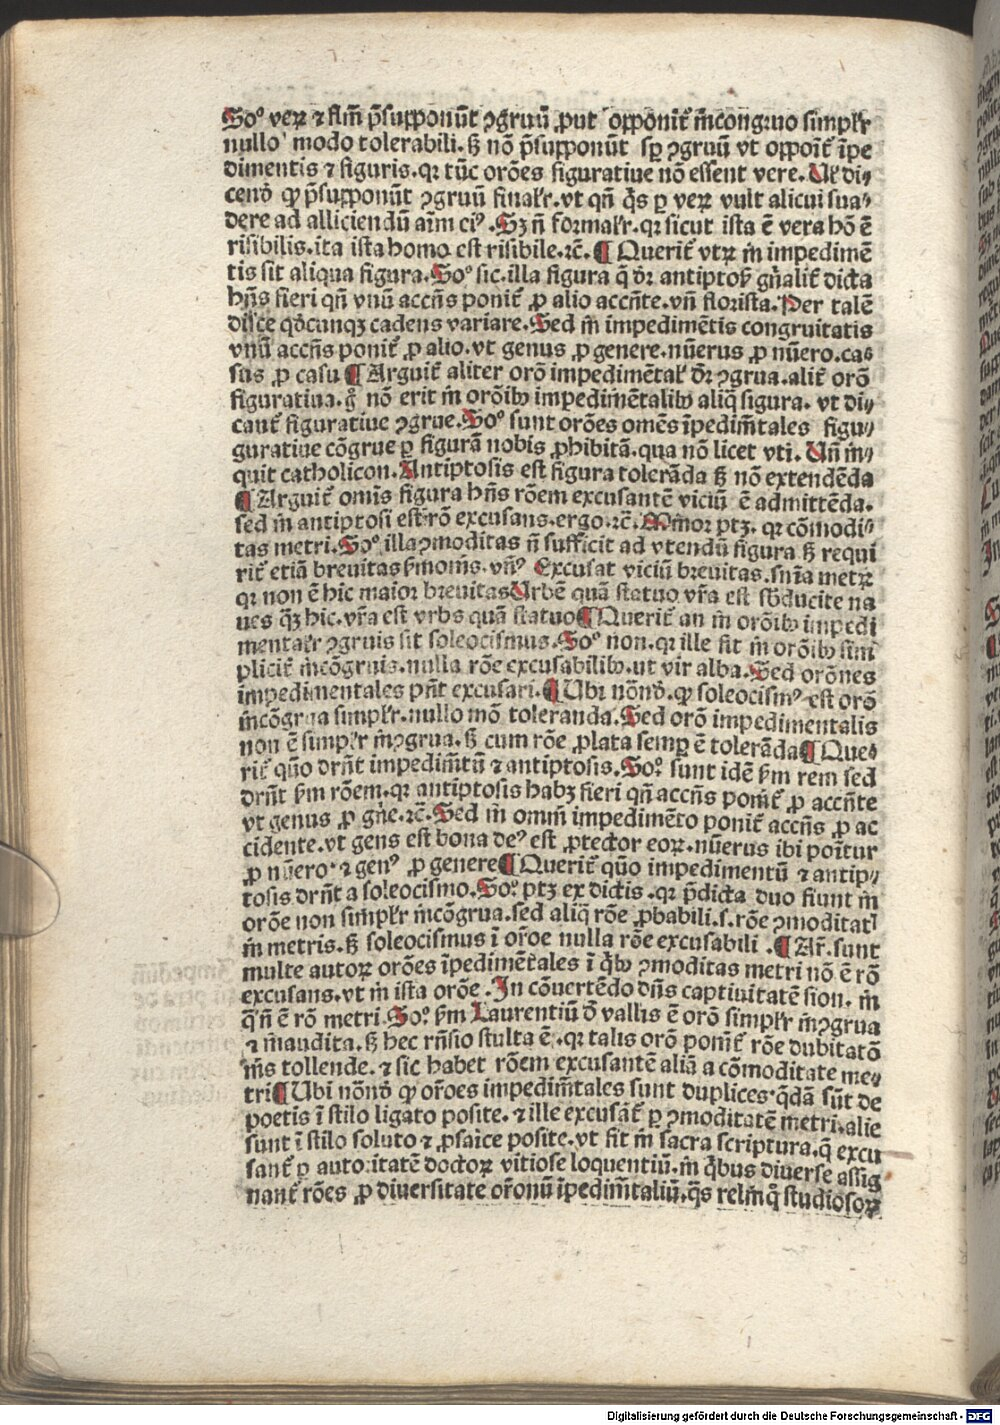 Soꝰ veꝝ ⁊ flm̄ p̄supponūt ꝯgruū ꝓut opponit᷑ īncongruo simplr̄
nullo modo tolerabili. sꝫ nō p̄supponūt sꝑ ꝯgruū vt oppoīt᷑ īpe
dimentis ⁊ figuris. qꝛ tūc orōes figuratiue nō essent vere. Ul̄ di⸗
cendū ꝙ p̄supponūt ꝯgruū finalr̄. vt qn̄ qͥs ꝑ veꝝ vult alicui sua⸗
dere ad alliciendū aīm eiꝰ. Sꝫ n̄ formalr̄. qꝛ sicut ista ē vera hō ē
risibilis. ita ista homo est risibile. ⁊c̄. ¶ Querit᷑ vtꝝ in impedimē
tis sit aliqua figura. Soꝰ sic. illa figura q̄ dr̄ antiptoꝰ gn̄alit᷑ dicta
hn̄s fieri qn̄ vnū accn̄s ponit᷑ ꝓ alio accn̄te. vn̄ florista. Per talē
disce qd̄cunqꝫ cadens variare. Sed in impedimētis congruitatis
vnū accn̄s ponit᷑ ꝓ alio. vt genus ꝓ genere. nūerus ꝓ nūero. ca⸗
sus ꝓ casu ¶ Arguit᷑ aliter orō impedimētal̄ dr̄ ꝯgrua. alit᷑ orō
figuratiua. gͦ nō erit in orōibꝰ impedimētalibꝰ aliq̄ figura. vt di⸗
cant᷑ figuratiue ꝯgrue. Soꝰ sunt orōes omēs īpedim̄tales figu⸗
guratiue cōgrue ꝑ figurā nobis ꝓhibitā. qua nō licet vti. Un̄ in⸗
quit catholicon. Antiptosis est figura tolerāda sꝫ nō extendēda
¶ Arguit᷑ omīs figura hn̄s rōem excusantē viciū ē admittēda.
sed in antiptosi est rō excusans. ergo. ⁊c̄. Minor ptꝫ. qꝛ cōmodi⸗
tas metri. Soꝰ illa ꝯmoditas n̄ sufficit ad vtendū figura sꝫ requi
rit᷑ etiā breuitas Sermonis. vn̄ꝰ Excusat viciū breuitas. sn̄ia metꝝ
qꝛ non ē hic maior breuitas Urbē quā statuo vr̄a est sb̄ducite na
ues qͣꝫ hic. vr̄a est vrbs quā statuo ¶ Querit᷑ an in orōibꝰ impedi
mentalr̄ ꝯgruis sit soleocismus. Soꝰ non. qꝛ ille fit in orōibꝰ sim
plicit᷑ incōgruis. nulla rōe excusabilibꝰ. ut vir alba. Sed orōnes
impedimentales pn̄t excusari. ¶ Ubi nōnd̄. ꝙ soleocismꝰ est orō
incōgrua simplr̄. nullo mō toleranda. Sed orō impedimentalis
non ē simplr̄ inꝯgrua. sꝫ cum rōe ꝓlata semꝑ ē tolerāda ¶ Que⸗
rit᷑ quō drn̄t impedim̄tū ⁊ antiptosis. Soꝰ sunt idē ẜm rem sed
drn̄t ẜm rōem. qꝛ antiptosis habꝫ fieri qn̄ accn̄s ponit᷑ ꝓ accn̄te
vt genus ꝓ gn̄e. ⁊c̄. Sed in omni impedimēto ponit᷑ accn̄s ꝓ ac
cidente. vt gens est bona deꝰ est ꝓtector eoꝝ. nūerus ibi poītur
ꝓ nūero. ⁊ genꝰ ꝓ genere ¶ Querit᷑ quō impedimentū ⁊ antip⸗
tosis drn̄t a soleocismo. Soꝰ ptꝫ ex dictis. qꝛ p̄dicta duo fiunt in
orōe non simplr̄ incōgrua. sed aliq̄ rōe ꝓbabili. s. rōe ꝯmoditatꝭ
in metris. sꝫ soleocismus ī or̄oe nulla rōe excusabili. ¶ Ar̄. sunt
multe autoꝝ orōes īpedimētales ī qͥbꝰ ꝯmoditas metri nō ē rō
excusans. vt in ista orōe. In cōuertēdo dn̄s captiuitatē sion. in
q̄ n̄ ē rō metri. Soꝰ ẜm Laurentiū d̄ vallis ē orō simplr̄ inꝯgrua
⁊ inaudita. sꝫ hec rn̄sio stulta ē. qꝛ talis orō ponit᷑ rōe dubitatō
nīs tollende. ⁊ sic habet rōem excusantē aliā a cōmoditate me⸗
tri ¶ Ubi nōnd̄ ꝙ or̄oes impedim̄tales sunt duplices. qͣdā sūt de
poetis ī stilo ligato posite. ⁊ ille excusāt᷑ ꝑ ꝯmoditatē metri. alie
sunt ī stilo soluto ⁊ ꝓsaice posite. vt fit in sacra scriptura. q̄ excu
sant᷑ ꝑ autoritatē doctoꝝ vitiose loquentiū. in qͥbus diuerse assig
nant᷑ rōes ꝓ diuersitate or̄onū īpedim̄taliū. qͣs relinqͦ studiosoꝝ
Digitalisierung gefördert durch die Deutsche Forschungsgemeinschaft - DFG